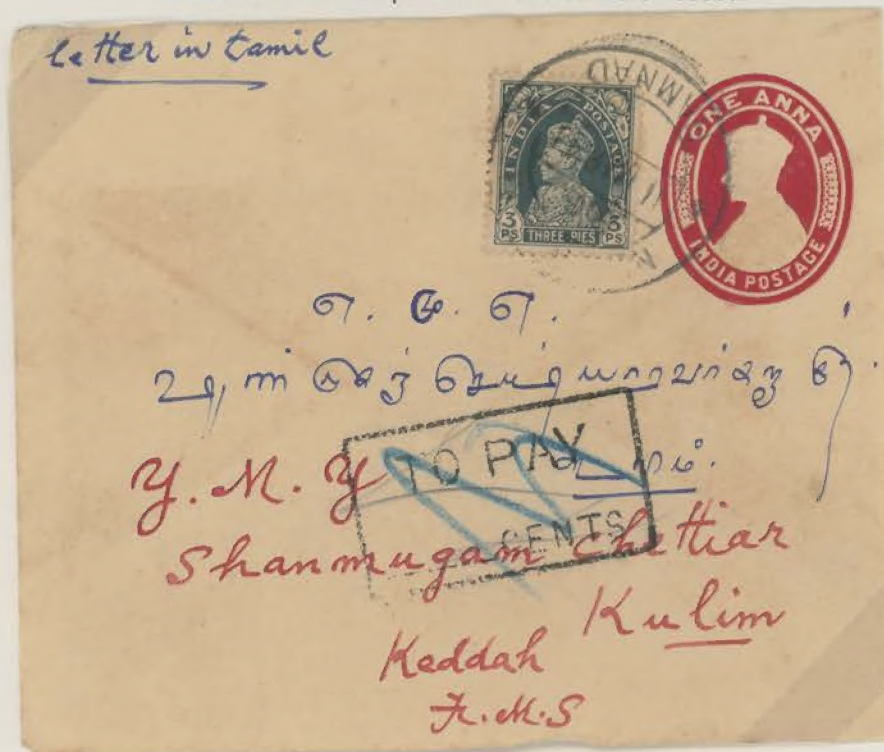 letter in tamil
INDIA POSTAGE
3 PS THREE PIES 3 PS
ONE ANNA
INDIA POSTAGE
MNAD
எ. மு. எ.
செட்டியாரவர்களு
TO PAY
CENTS
Y. M. Y
Shanmugam Chettiar
Kulim
Keddah
F.M.S